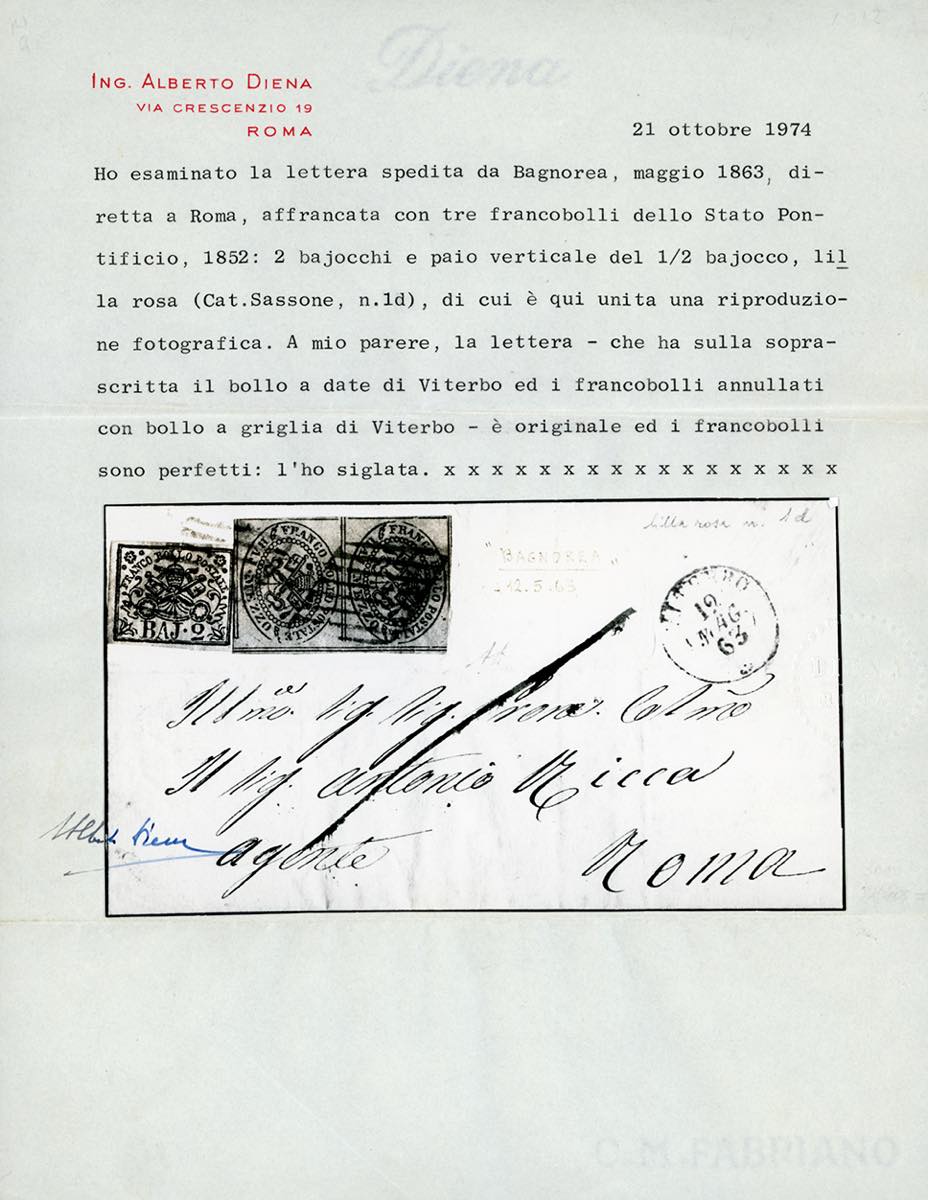 Diena
ING. ALBERTO DIENA
VIA CRESCENZIO 19
ROMA
21 ottobre 1974
Ho esaminato la lettera spedita da Bagnorea, maggio 1863, di-
retta a Roma, affrancata con tre francobolli dello Stato Pon-
tificio, 1852: 2 bajocchi e paio verticale del 1/2 bajocco, lil
la rosa (Cat.Sassone, n.1d), di cui è qui unita una riproduzio-
ne fotografica. A mio parere, la lettera - che ha sulla sopra-
scritta il bollo a date di Viterbo ed i francobolli annullati
con bollo a griglia di Viterbo - è originale ed i francobolli
sono perfetti: l'ho siglata. x x x x x x x x x x x x x x x x x
lilla rosa n. 1d
"BAGNOREA"
12.5.63
FRANCO BOLLO POSTALE
BAJ. 2
FRANCO
FRANCO
VITERBO
12
MAG
63
Ill.mo Sig. Sig.
Il Sig. Antonio Ricca
agente
Roma
Alberto Diena
C.M.FABRIANO